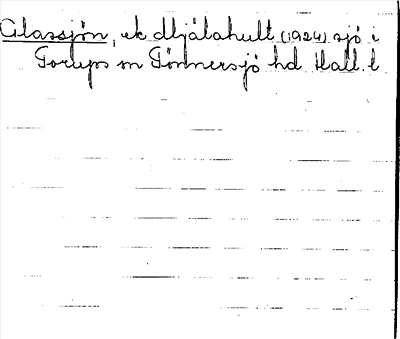 Glassjön, ek Mjälahult (1924) sjö i
Torups sn Tönnersjö hd Hall. l